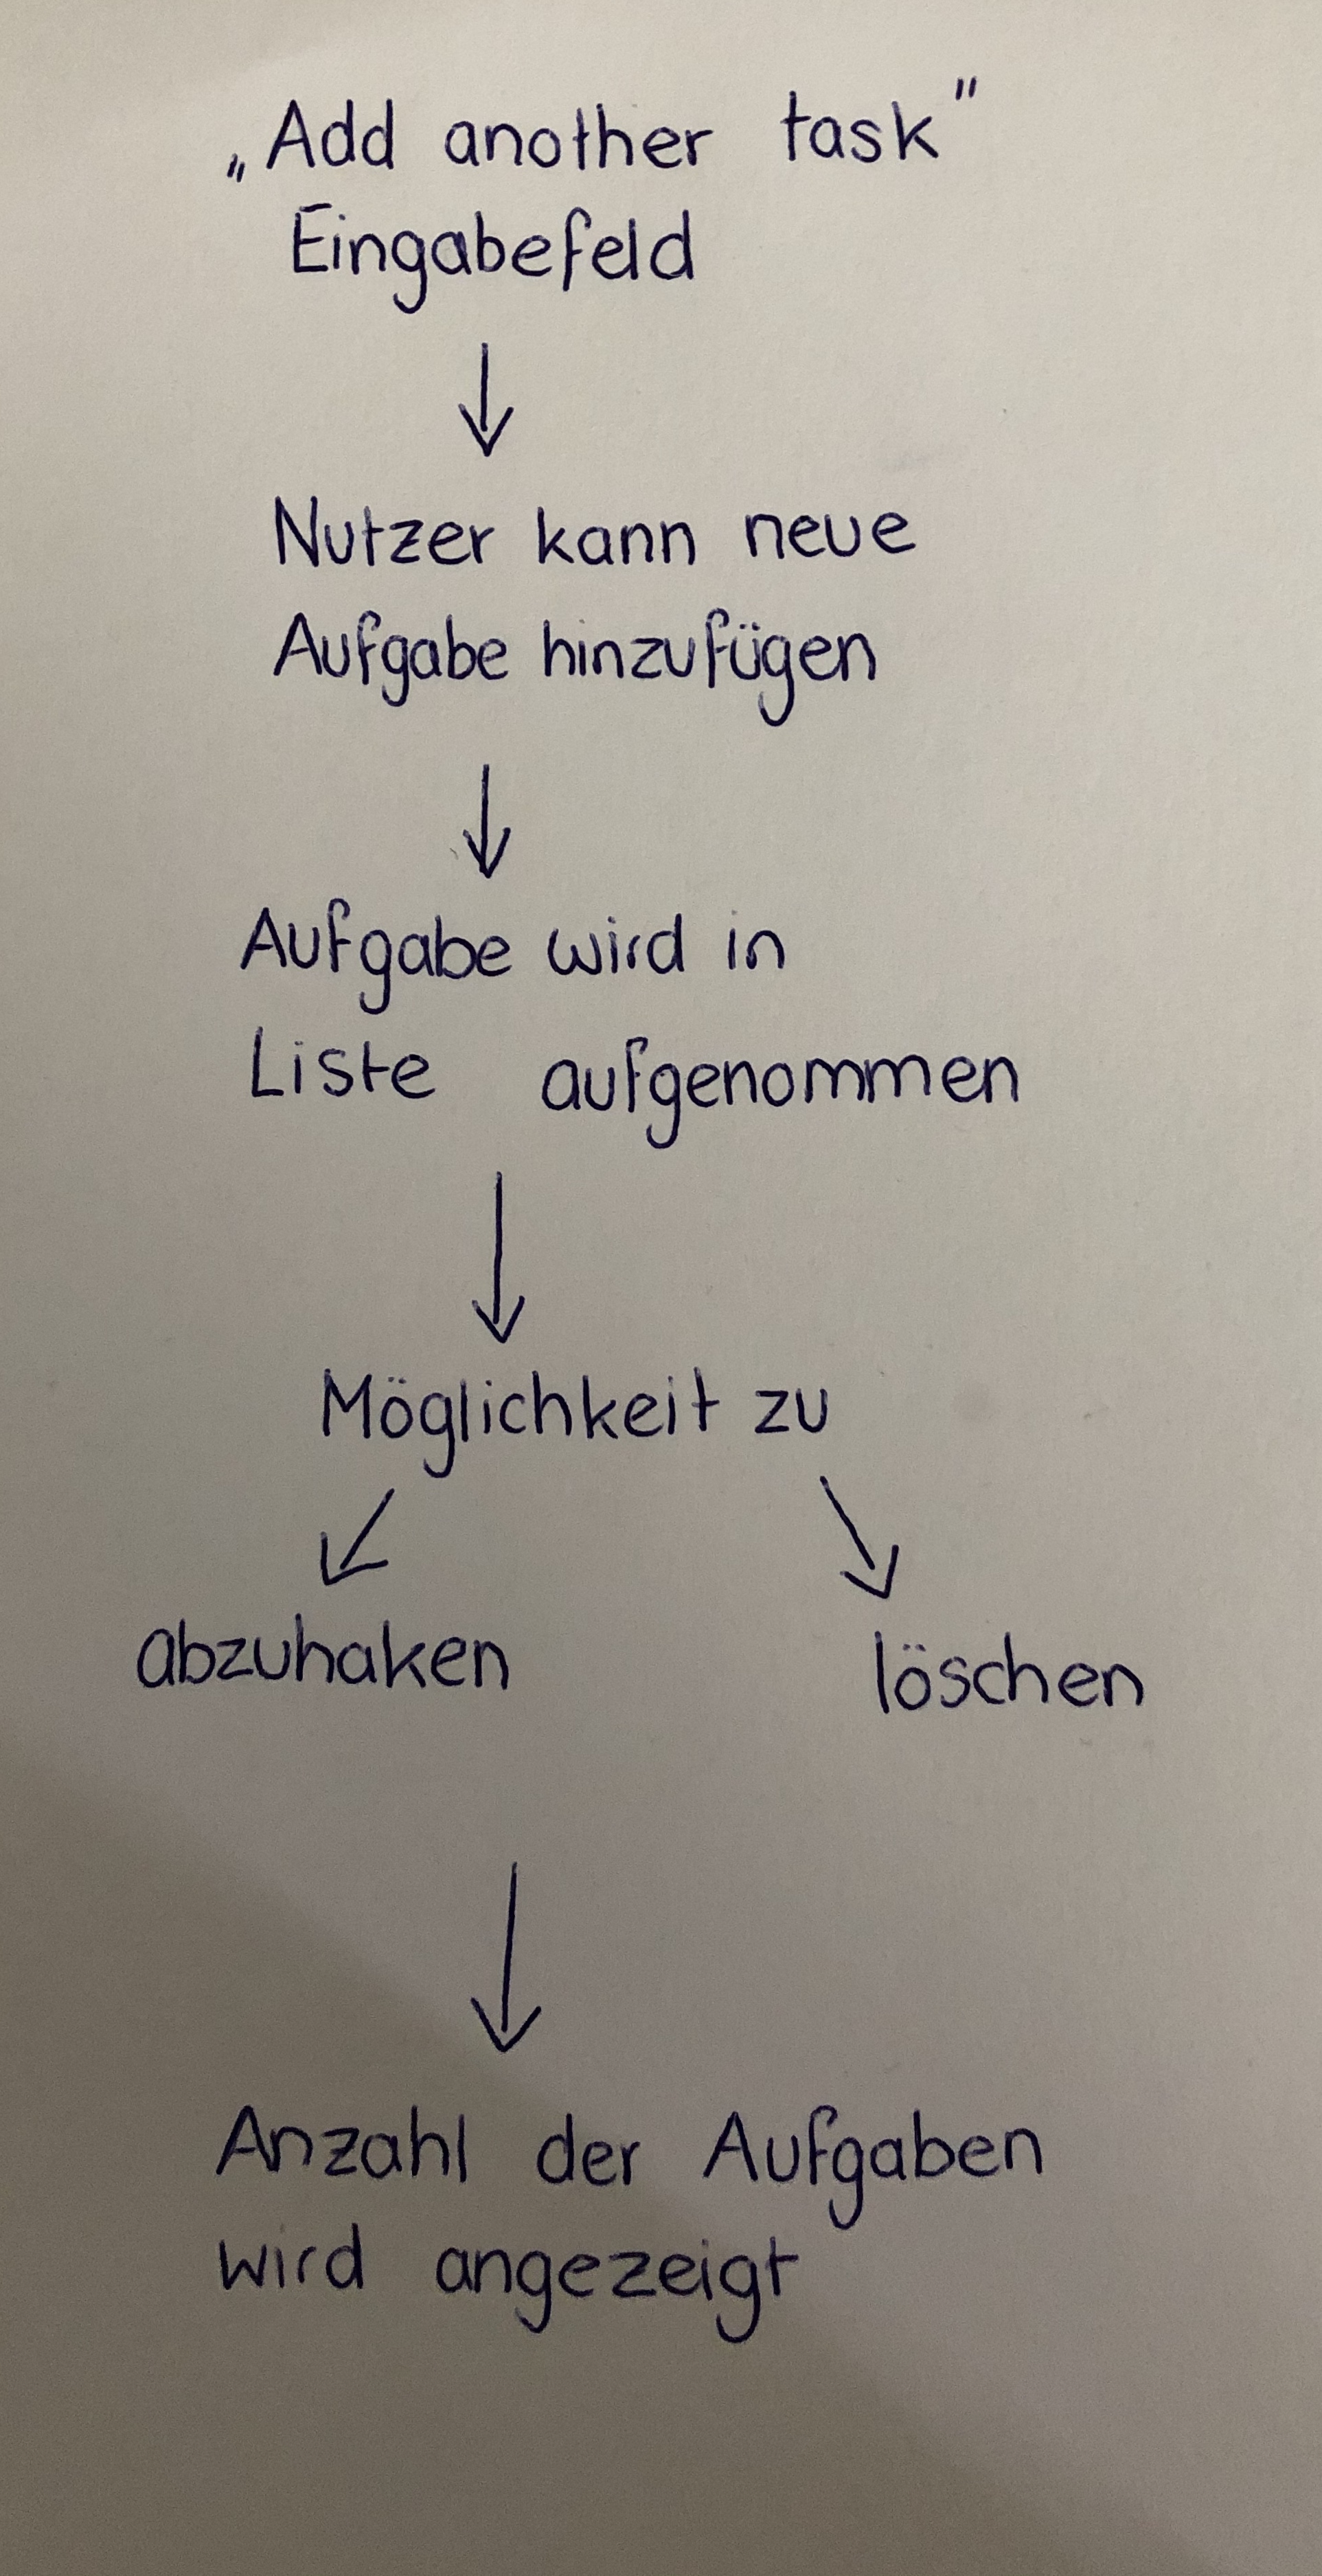 „Add another task"
Eingabefeld
Nutzer kann neue
Aufgabe hinzufügen
Aufgabe wird in
Liste aufgenommen
Möglichkeit zu
abzuhaken löschen
Anzahl der Aufgaben
wird angezeigt